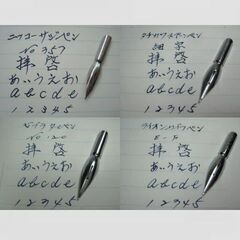 ニッコーサジペン
No 357
拝啓
あいうえお
abcde
12345
タチカワスプーンペン
細字
拝啓
あいうえお
abcde
12345
ゼブラタマペン
拝啓
あいうえお
abcde
12345
拝啓
あいうえお
abcde
12345